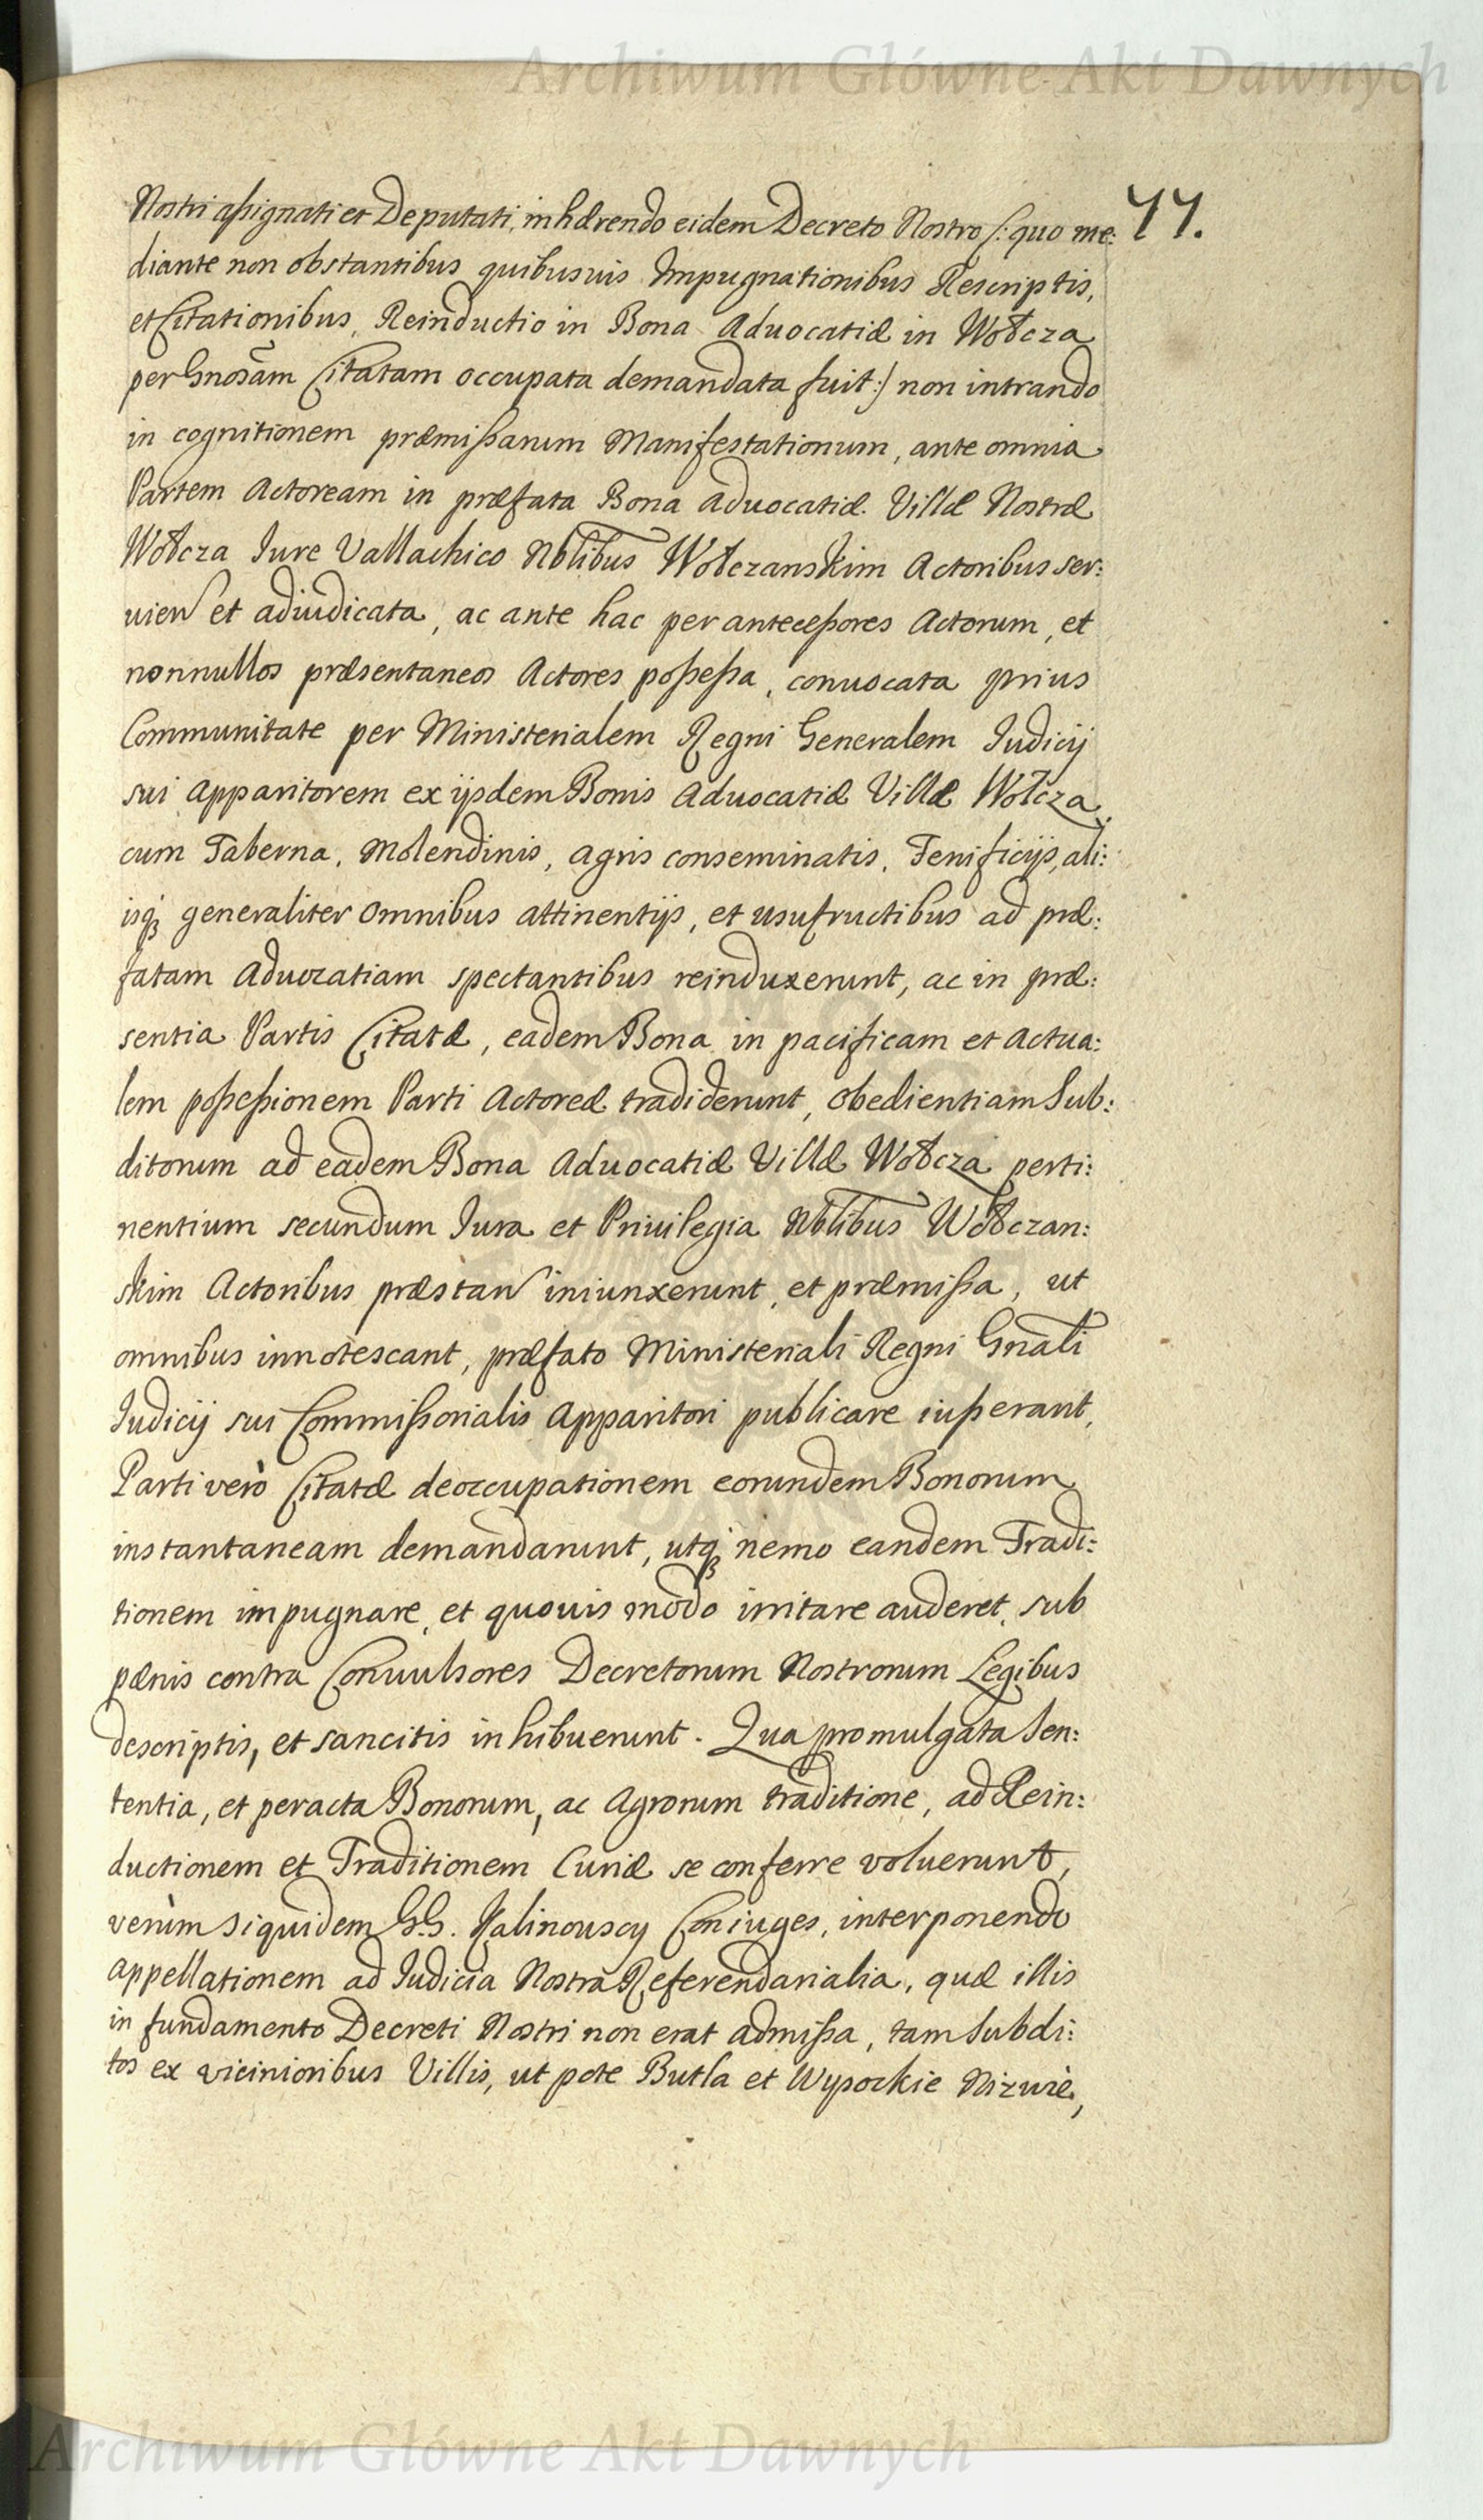 Archiwum Główne Akt Dawnych
77.
Nostri assignati et Deputati, inhærendo eidem Decreto Nostro /: quo me:
diante non obstantibus quibusuis Impugnationibus Rescriptis,
et Citationibus, Reinductio in Bona Aduocatiæ in Wołcza
per Gnosam Citatam occupata demandata fuit :/ non intrando
in cognitionem præmissarum Manifestationum, ante omnia
Partem Actoream in præfata Bona Aduocatiæ Villæ Nostræ
Wołcza Iure Vallachico Nblibus Wołczanskim Actoribus ser:
uien et adiudicata, ac ante hac per antecessores Actorum, et
nonnullos præsentaneos Actores possessa, conuocata prius
Communitate per Ministerialem Regni Generalem Iudicij
sui Apparitorem ex ijsdem Bonis Aduocatiæ Villæ Wołcza,
cum Taberna, Molendinis, Agris conseminatis, Fenificijs, ali:
isq generaliter omnibus attinentijs, et usufructibus ad præ:
fatam Aduocatiam spectantibus reinduxerunt, ac in præ:
sentia Partis Citatæ, eadem Bona in pacificam et Actua:
lem possessionem Parti Actoreæ tradiderunt, obedientiam Sub:
ditorum ad eadem Bona Aduocatiæ Villæ Wołcza perti:
nentium secundum Iura et Priuilegia Nblibus Wołczan:
skim Actoribus præstan iniunxerunt, et præmissa, ut
omnibus innotescant, præfato Ministeriali Regni Gnali
Iudicij sui Commissorialis Apparitori publicare iusserant,
Parti verò Citatæ deoccupationem eorundem Bonorum
instantaneam demandarunt, utq nemo eandem Tradi:
tionem impugnare, et quouis modo irritare auderet, sub
pænis contra Conuulsores Decretorum Nostrorum Legibus
descriptis, et sancitis inhibuerunt. Qua promulgata Sen:
tentia, et peracta Bonorum, ac Agrorum traditione, ad Rein:
ductionem et Traditionem Curiæ se conferre voluerunt,
verùm siquidem G.G. Kalinouscy Coniuges, interponendo
appellationem ad Iudicia Nostra Referendarialia, quæ illis
in fundamento Decreti Nostri non erat admissa, tam Subdi:
tos ex vicinioribus Villis, ut pote Butla et Wysockie Nizuie,
Archiwum Główne Akt Dawnych